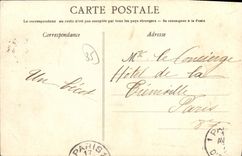 CARTE POSTALE
La correspondance au recto n'est pas acceptée par tous les pays étrangers - Se renseigner à la Poste
Correspondance
Adresse
35
Mr le Concierge
Hôtel de la
Trémoille
Paris
Un
PARIS
17